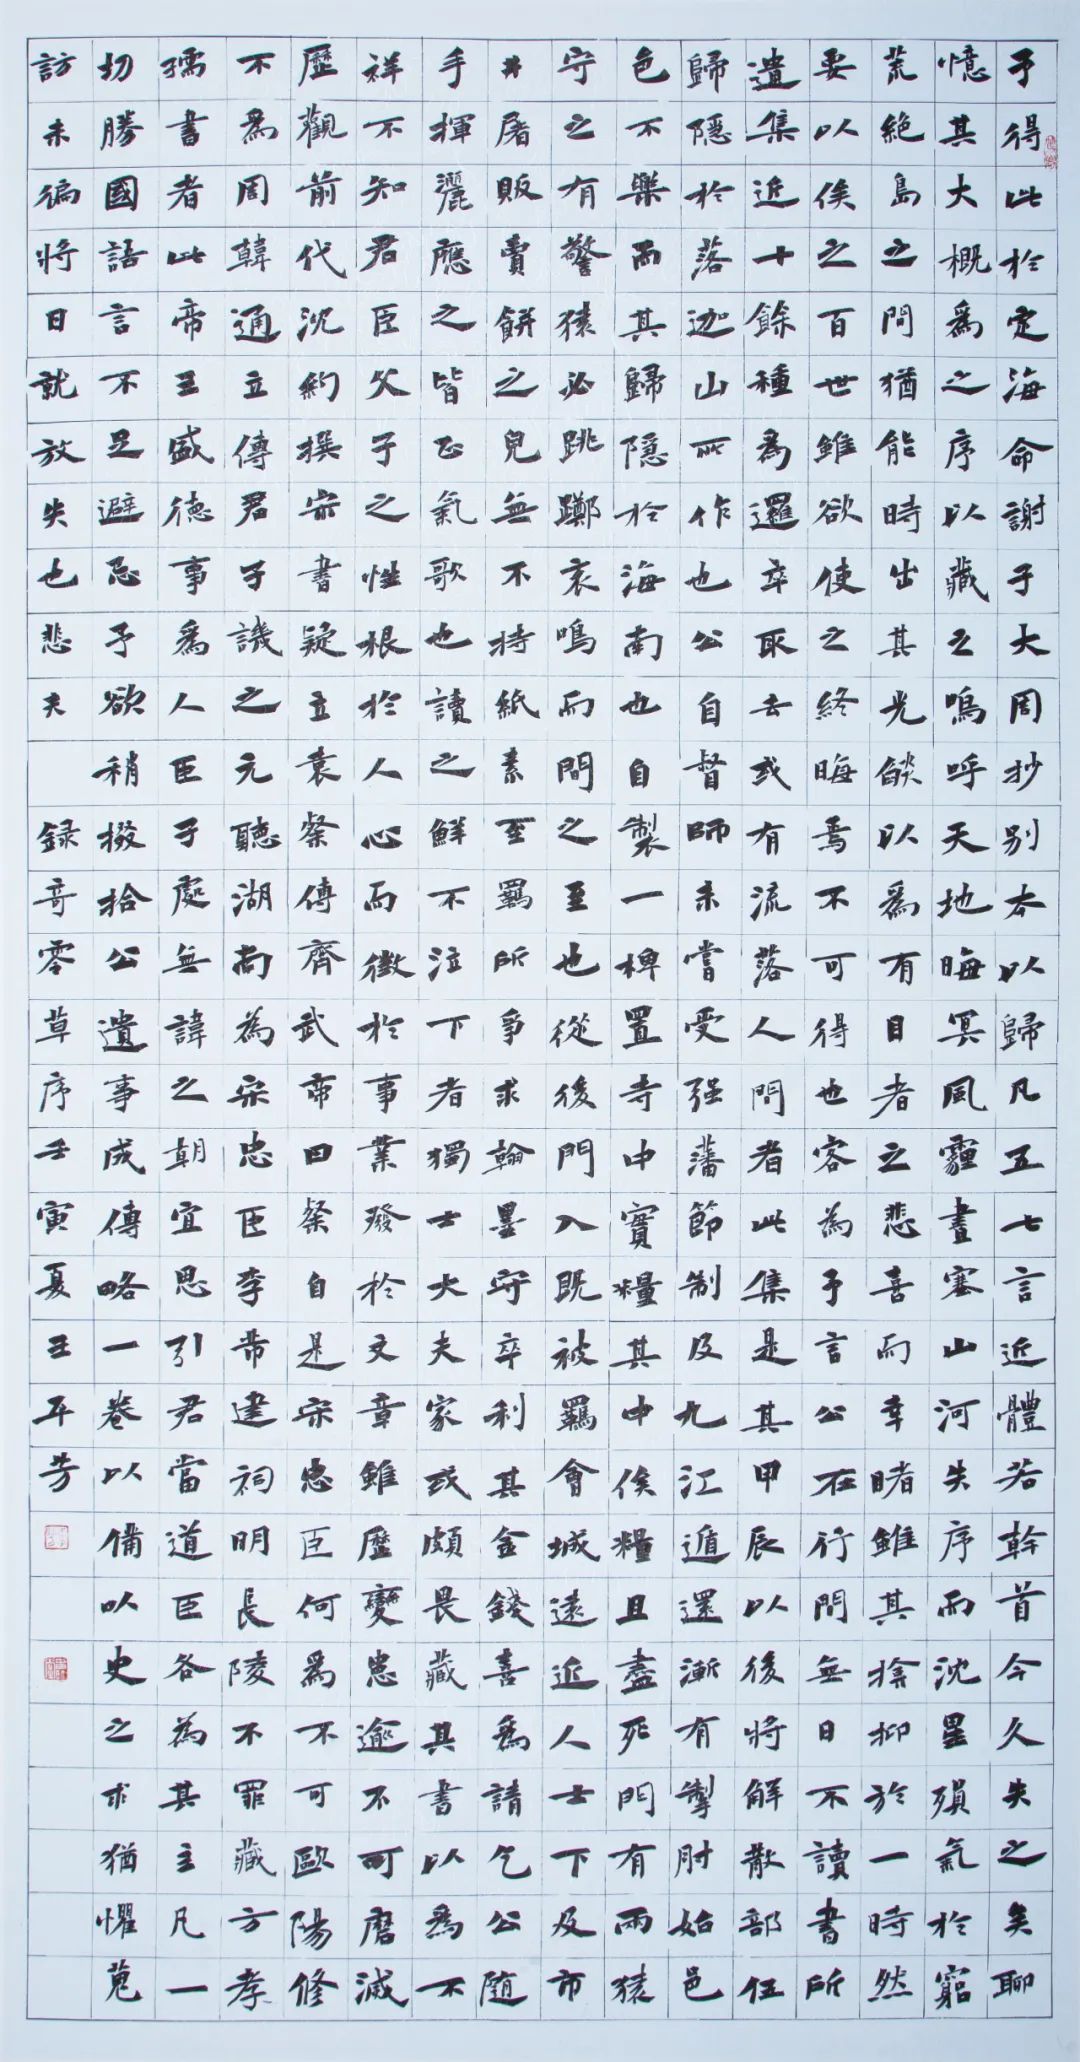 予得此於定海命謝子大周抄别本以歸凡五七言近體若幹首今久失之矣聊
憶其大概爲之序以藏之嗚呼天地晦冥風霾晝塞山河失序而沈星殞氣於窮
荒絶島之間猶能時出其光燄以爲有目者之悲喜而幸睹雖其揜抑於一時然
要以俟之百世雖欲使之終晦焉不可得也客為予言公在行間無日不讀書所
遺集近十餘種爲邏卒取去或有流落人間者此集是其甲辰以後將解散部伍
歸隱於落迦山所作也公自督師未嘗受强藩節制及九江遁還漸有掣肘始邑
色不樂而其歸隱於海南也自製一椑置寺中實糧其中俟糧且盡死門有兩猿
守之有警猿必跳躑哀鳴而間之至也從後門入既被羈會城遠近人士下及市
井屠販賣餅之兒無不持紙素至羈所爭求翰墨守卒利其金錢喜爲請乞公随
手揮灑應之皆正氣歌也讀之鮮不泣下者獨士大夫家或頗畏藏其書以爲不
祥不知君臣父子之性根於人心而徵於事業發於文章雖歷變患逾不可磨滅
歷觀前代沈約撰宋書疑立袁粲傳齊武帝曰粲自是宋忠臣何爲不可歐陽修
不爲周韓通立傳君子譏之元聽湖南為宋忠臣李芾建祠明長陵不罪藏方孝
孺書者此帝王盛德事爲人臣子處無諱之朝宜思引君當道臣各為其主凡一
切勝國語言不足避忌予欲稍掇拾公遺事成傳略一卷以備以史之求猶懼蒐
訪未徧將日就放失也悲夫 録奇零草序壬寅夏王平芳